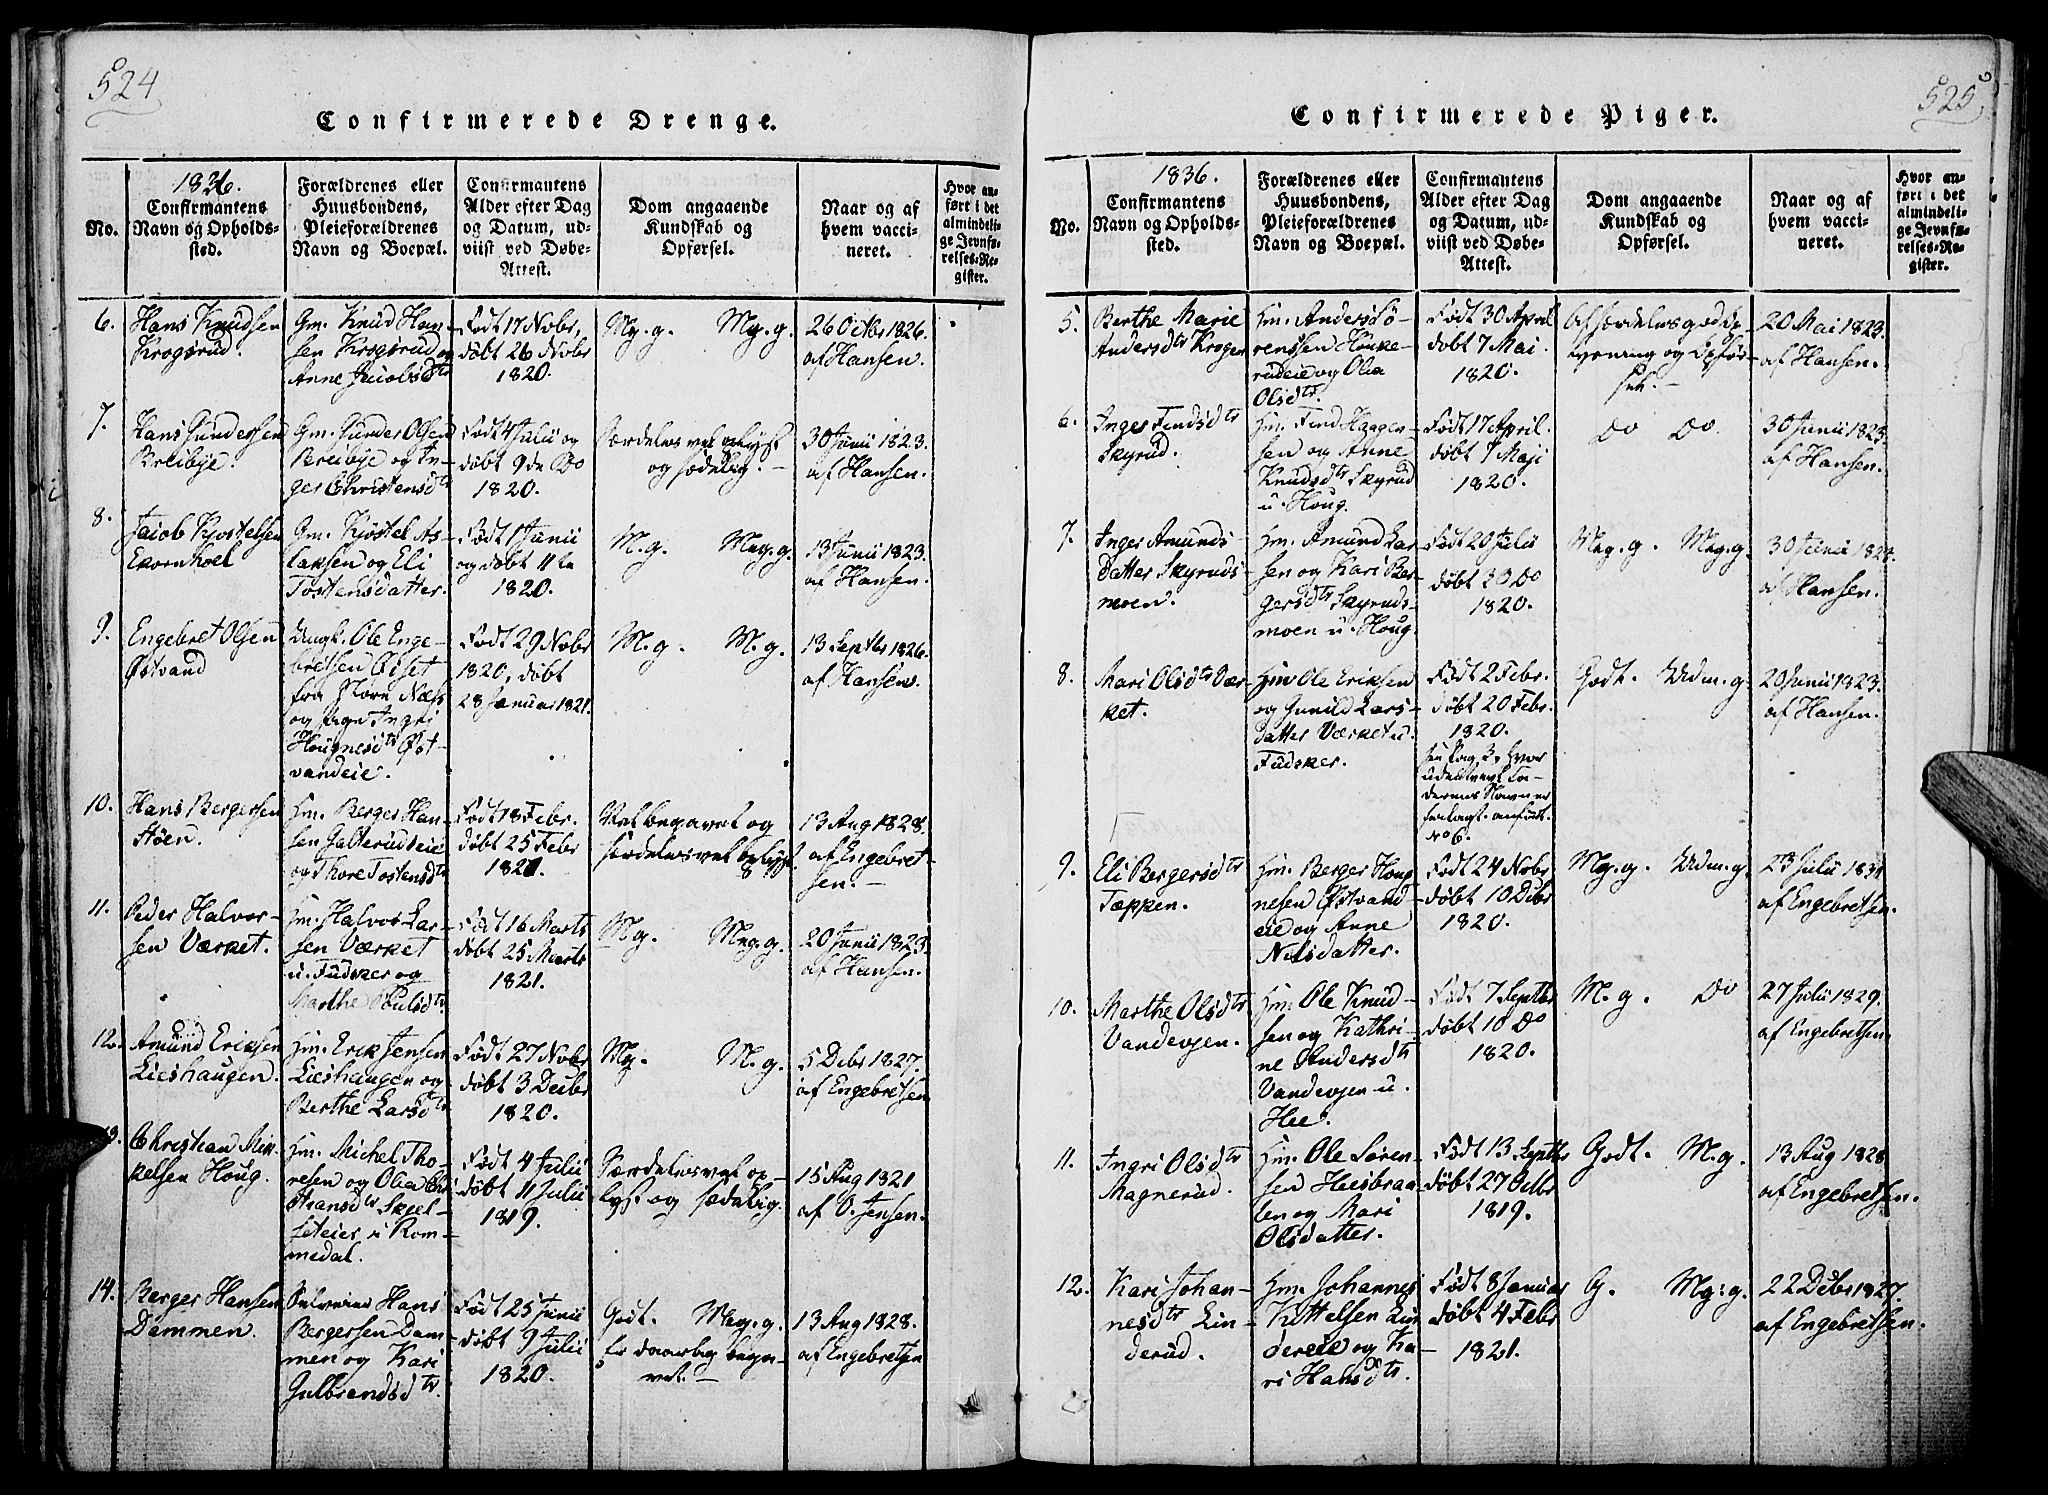 524
Confirmerede Drenge.
No.
1836.
Confirmantens
Navn og Opholds-
sted.
Forældrenes eller
Huusbondens,
Pleieforældrenes
Navn og Boepæl.
Confirmantens
Alder efter Dag
og Datum, ud-
viist ved Døbe-
Attest.
Dom angaaende
Kundskab og
Opførsel.
Naar og af
hvem vacci-
neret.
Hvor an-
ført i det
almindeli-
ge Jevnfø-
relses-Re-
gister.
6.
Hans Knudsen
Krogsrud.
Gm. Knud Han-
sen Krogsrud og
Anne Jacobsdtr
Født 17 Novbr,
døbt 26 Novbr
1820.
Mg. g. Mg. g.
26 Octbr 1826.
af Hansen.
7.
Hans Gundersen
Breibye.
Gm. Gunder Olsen
Breibye og In-
ger Christensdtr
Født 4 Julii og
døbt 9de Do
1820.
Særdeles vel oplyst
og sædelig.
30 Junii 1823.
af Hansen.
8.
Jacob Kjostelsen
Ekornhoel
Gm. Kjøstel As-
laksen og Eli
Tostensdatter.
Født 1 Junii
og døbt 11te
1820.
M. g. Meg. g.
13 Junii 1823.
af Hansen.
9.
Engebret Olsen
Østvand
Ungk. Ole Enge-
bretsen Øiset
fra Store Næss
og Pige Ingri
Hougnesdtr Øst-
vandeie.
Født 29 Novbr
1820, døbt
28 Januar 1821.
M. g. M. g.
13 Septbr 1826.
af Hansen.
10.
Hans Bergersen
Støen.
Hm. Berger Han-
sen Galterudseie
og Thore Tostensdtr
Født 18 Febr.
døbt 25 Febr
1821.
Vel begavet og
særdeles vel oplyst.
13 Aug 1828.
af Engebret-
sen.
11.
Peder Halvor-
sen Værket.
Hm. Halvor Lar-
sen Værket
u. Fudsker og
Marthe Poulsdtr.
Født 16 Marts
døbt 25 Marts
1821.
Mg. Meg. g.
20 Junii 1823.
af Hansen.
12.
Amund Eriksen
Lieshaugen.
Hm. Erik Jensen
Lieshaugen og
Berthe Larsdtr
Født 27 Novbr
døbt 3 Decbr
1820.
Mg. M. g.
5 Debr 1827.
af Engebretsen
13.
Christian Mik-
kelsen Houg.
Hm. Michel Tho-
resen og Olia Chri
stiansdtr
i Rom-
medal.
Født 4 Julii
døbt 11 Julii
1819.
Særdeles vel op-
lyst og sædelig.
15 Aug 1821
af O. Jensen.
14.
Berger Hansen
Dammen.
Selveier Hans
Bergersen Dam-
men og Kari
Gulbrandsdtr.
Født 25 Junii
døbt 9 Julii
1820.
Godt. Meg. g.
Er daarlig bega-
vet.
13 Aug 1828.
af Engebretsen
525
Confirmerede Piger.
No.
1836.
Confirmantens
Navn og Opholds-
sted.
Forældrenes eller
Huusbondens,
Pleieforældrenes
Navn og Boepæl.
Confirmantens
Alder efter Dag
og Datum, ud-
viist ved Døbe-
Attest.
Dom angaaende
Kundskab og
Opførsel.
Naar og af
hvem vacci-
neret.
Hvor an-
ført i det
almindeli-
ge Jevnfø-
relses-Re-
gister.
5.
Berthe Marie
Andersdtr Krogen
Hm. Anders Sø-
rensen Houke-
rudeie og Olia
Olsdtr.
Født 30 April
døbt 7 Mai
1820.
Af særdeles god Op-
lysning og Opfør-
sel.
20 Mai 1823.
af Hansen.
6.
Inger Findsdtr
Skyrud.
Hm. Find Haagen-
sen og Anne
Knudsdtr Skyrud
u. Houg.
Født 17 April.
døbt 7 Maji
1820.
Do Do
30 Junii 1823.
af Hansen.
7.
Inger Amunds
Datter Skyruds-
moen.
Hm. Amund Lar-
sen og Kari Ber-
gersdtr Skyruds-
moen u. Houg.
Født 20 Julii
døbt 30 Do
1820.
Meg. g. Meg. g.
30 Junii 1824.
af Hansen.
8.
Mari Olsdtr Vær-
ket.
Hm Ole Eriksen
og Gunild Lars-
datter Værket u.
Fudsker.
Født 2 Febr.
døbt 20 Febr.
1820.
Pag. 3, hvor
Fa-
derens Navn er
anført.
No 6.
Godt. Udm. g.
20 Junii 1823.
af Hansen.
9.
Eli Bergersdtr
Tæppen.
Hm. Berger Houg-
nesen Østvand-
eie og Anne
Nilsdatter.
Født 24 Novbr
døbt 10 Debr
1820.
Mg. g. Udm. g
23 Julii 1831
af Engebretsen.
10.
Marthe Olsdtr
Vandevjen.
Hm. Ole Knud-
sen og Kathri-
ne Andersdtr
Vandevjen u.
Hee.
Født 7 Septbr
døbt 10 Do
1820.
M. g. Do
27 Julii 1829.
af Engebretsen.
11.
Ingri Olsdtr
Magnerud.
Hm. Ole Søren-
sen Heesbraa-
ten og Mari
Olsdatter.
Født 13 Septbr
døbt 27 Octbr
1819.
Godt. M. g.
13 Aug 1828
af Engebretsen.
12.
Kari Johan-
nesdtr Lin-
derud.
Hm. Johannes
Kittelsen Lin
derud og Ka-
ri Hansdtr.
Født 8 Januar
døbt 4 Febr
1821.
G. Mg: g.
22 Debr 1827.
af Engebretsen.